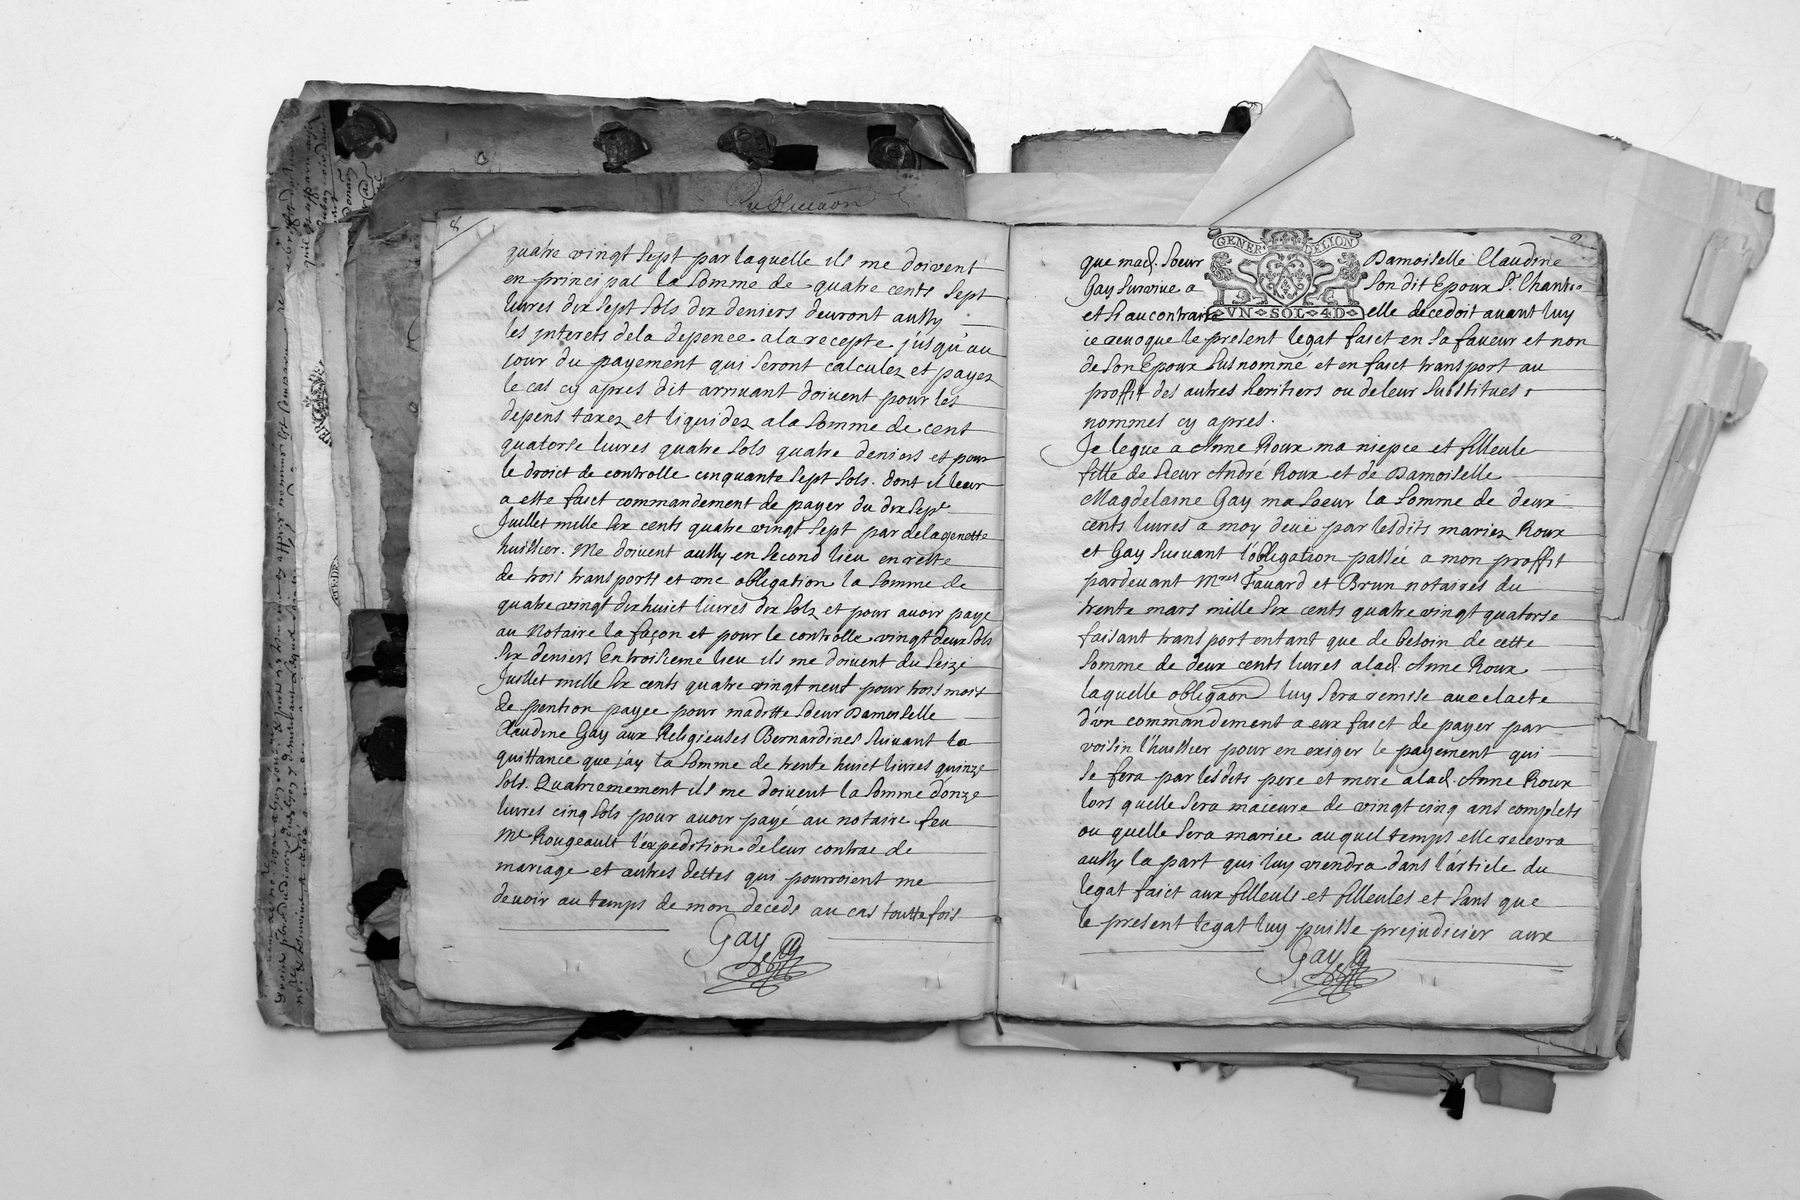 8
quatre vingt sept par laquelle ils me doivent
en principal la somme de quatre cents sept
livres dix sept sols dix deniers devront aussy
les interets dela depence ala recepte jusqu'au
jour du payement qui seront calculez et payez
le cas cy apres dit arrivant doivent pour les
depens taxez et liquidez ala somme de cent
quatorse livres quatre sols quatre deniers et pour
le droict de controlle cinquante sept sols. dont il leur
a este faict commandement de payer du dix sepe
Juillet mille six cents quatre vingt sept par delagenette
huissier. Me doivent aussy en second lieu en reste
de trois transports et une obligation la somme de
quatre vingt dix huict livres dix sols et pour avoir payé
au Notaire la façon et pour le controlle vingt deux sols
six deniers En troisieme lieu ils me doivent du seize
Juillet mille six cents quatre vingt neuf pour trois mois
de pention payee pour maditte soeur Damoiselle
Claudine Gay aux Religieuses Bernardines suivant la
quittance que j'ay la somme de trente huict livres quinze
sols. Quatriemement ils me doivent la somme d'onze
livres cinq sols pour avoir payé au notaire feu
Me Rougeault l'expedition deleur contrac de
mariage et autres dettes qui pourroient me
devoir au temps de mon decede au cas touttefois
Gay
Publicaon
9
GENER DELION
VN SOL 4D
que mad. soeur Damoiselle Claudine
Gay survive a son dit Epoux Sr. Chant
et si au contraire elle decedoit avant luy
ie revoque le present legat faict en sa faveur et non
de son Epoux susnommé et en faict transport au
proffit des autres heritiers ou deleur substitues
nommes cy apres.
Je legue a Anne Roux ma niepce et filleule
fille de sieur André Roux et de Damoiselle
Magdelaine Gay ma soeur la somme de deux
cents livres a moy deüe par lesdits mariez Roux
et Gay suivant l'obligation passée a mon proffit
pardevant Mres Favard et Brun notaires du
trente mars mille six cents quatre vingt quatorse
faisant transport entant que de besoin de cette
somme de deux cents livres alad. Anne Roux
laquelle obligaon luy sera remise avec lacte
d'un commandement a eux faict de payer par
voisin l'huissier pour en exiger le payement qui
se fera par lesdits pere et mere alad. Anne Roux
lors quelle sera maieure de vingt cinq ans complets
ou quelle sera mariée auquel temps elle recevra
aussy la part qui luy viendra dans l'article du
legat faict aux filleuls et filleules et sans que
le present legat luy puisse prejudicier aux
Gay